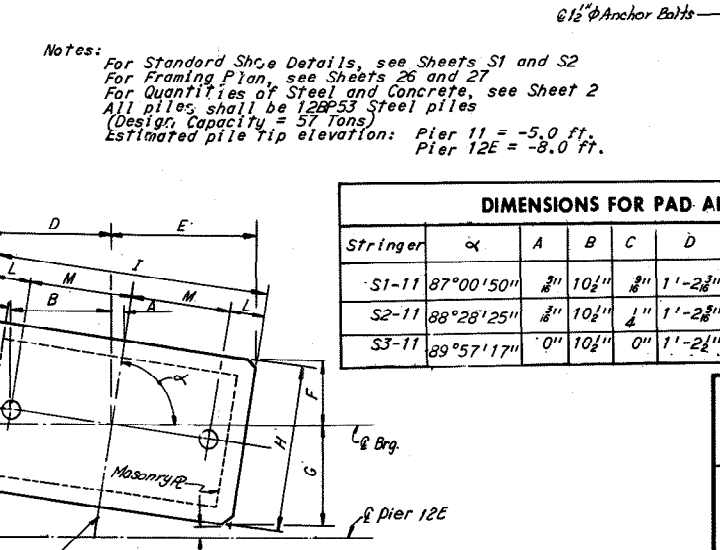 ℄ 1½"φ Anchor Bolts
Notes:
For Standard Shoe Details, see Sheets S1 and S2
For Framing Plan, see Sheets 26 and 27
For Quantities of Steel and Concrete, see Sheet 2
All piles shall be 12BP53 Steel piles
(Design Capacity = 57 Tons)
Estimated pile tip elevation: Pier 11 = -5.0 ft.
Pier 12E = -8.0 ft.
DIMENSIONS FOR PAD
Stringer α A B C D
S1-11 87°00'50" 10½" 1'-2
S2-11 88°28'25" 3/16" 10½" ¼" 1'-2
S3-11 89°57'17" 0" 10½" 0" 1'-2½"
D E
I
L M M L
B A
α
F
H
G
℄ Brg.
Masonry ℄
℄ Pier 12E